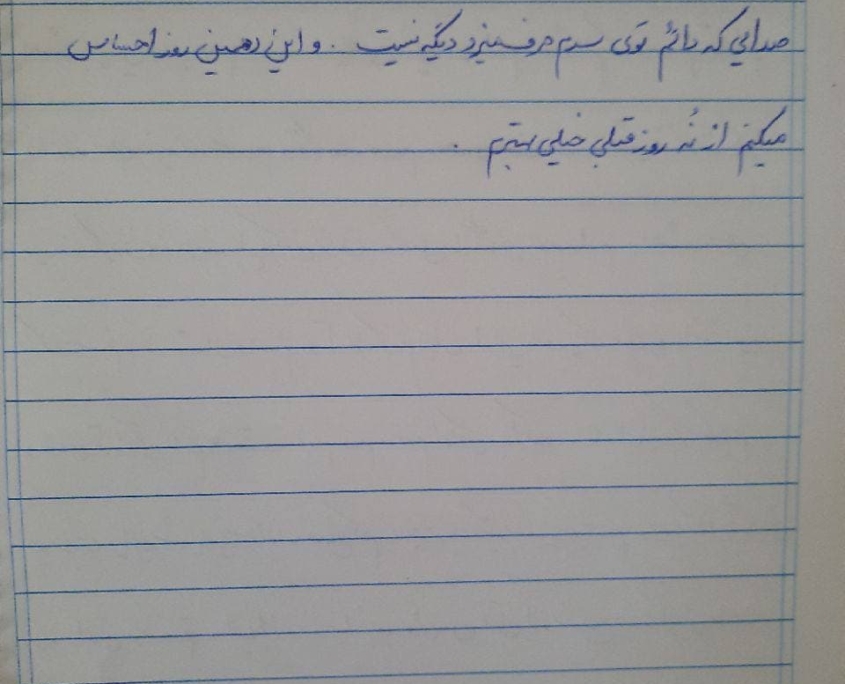 صدایی که دائم توی سرم حرف میزد دیگه نیست . و این دهمین روز احساس
میکنم از نُه روز قبلی خیلی بهترم .